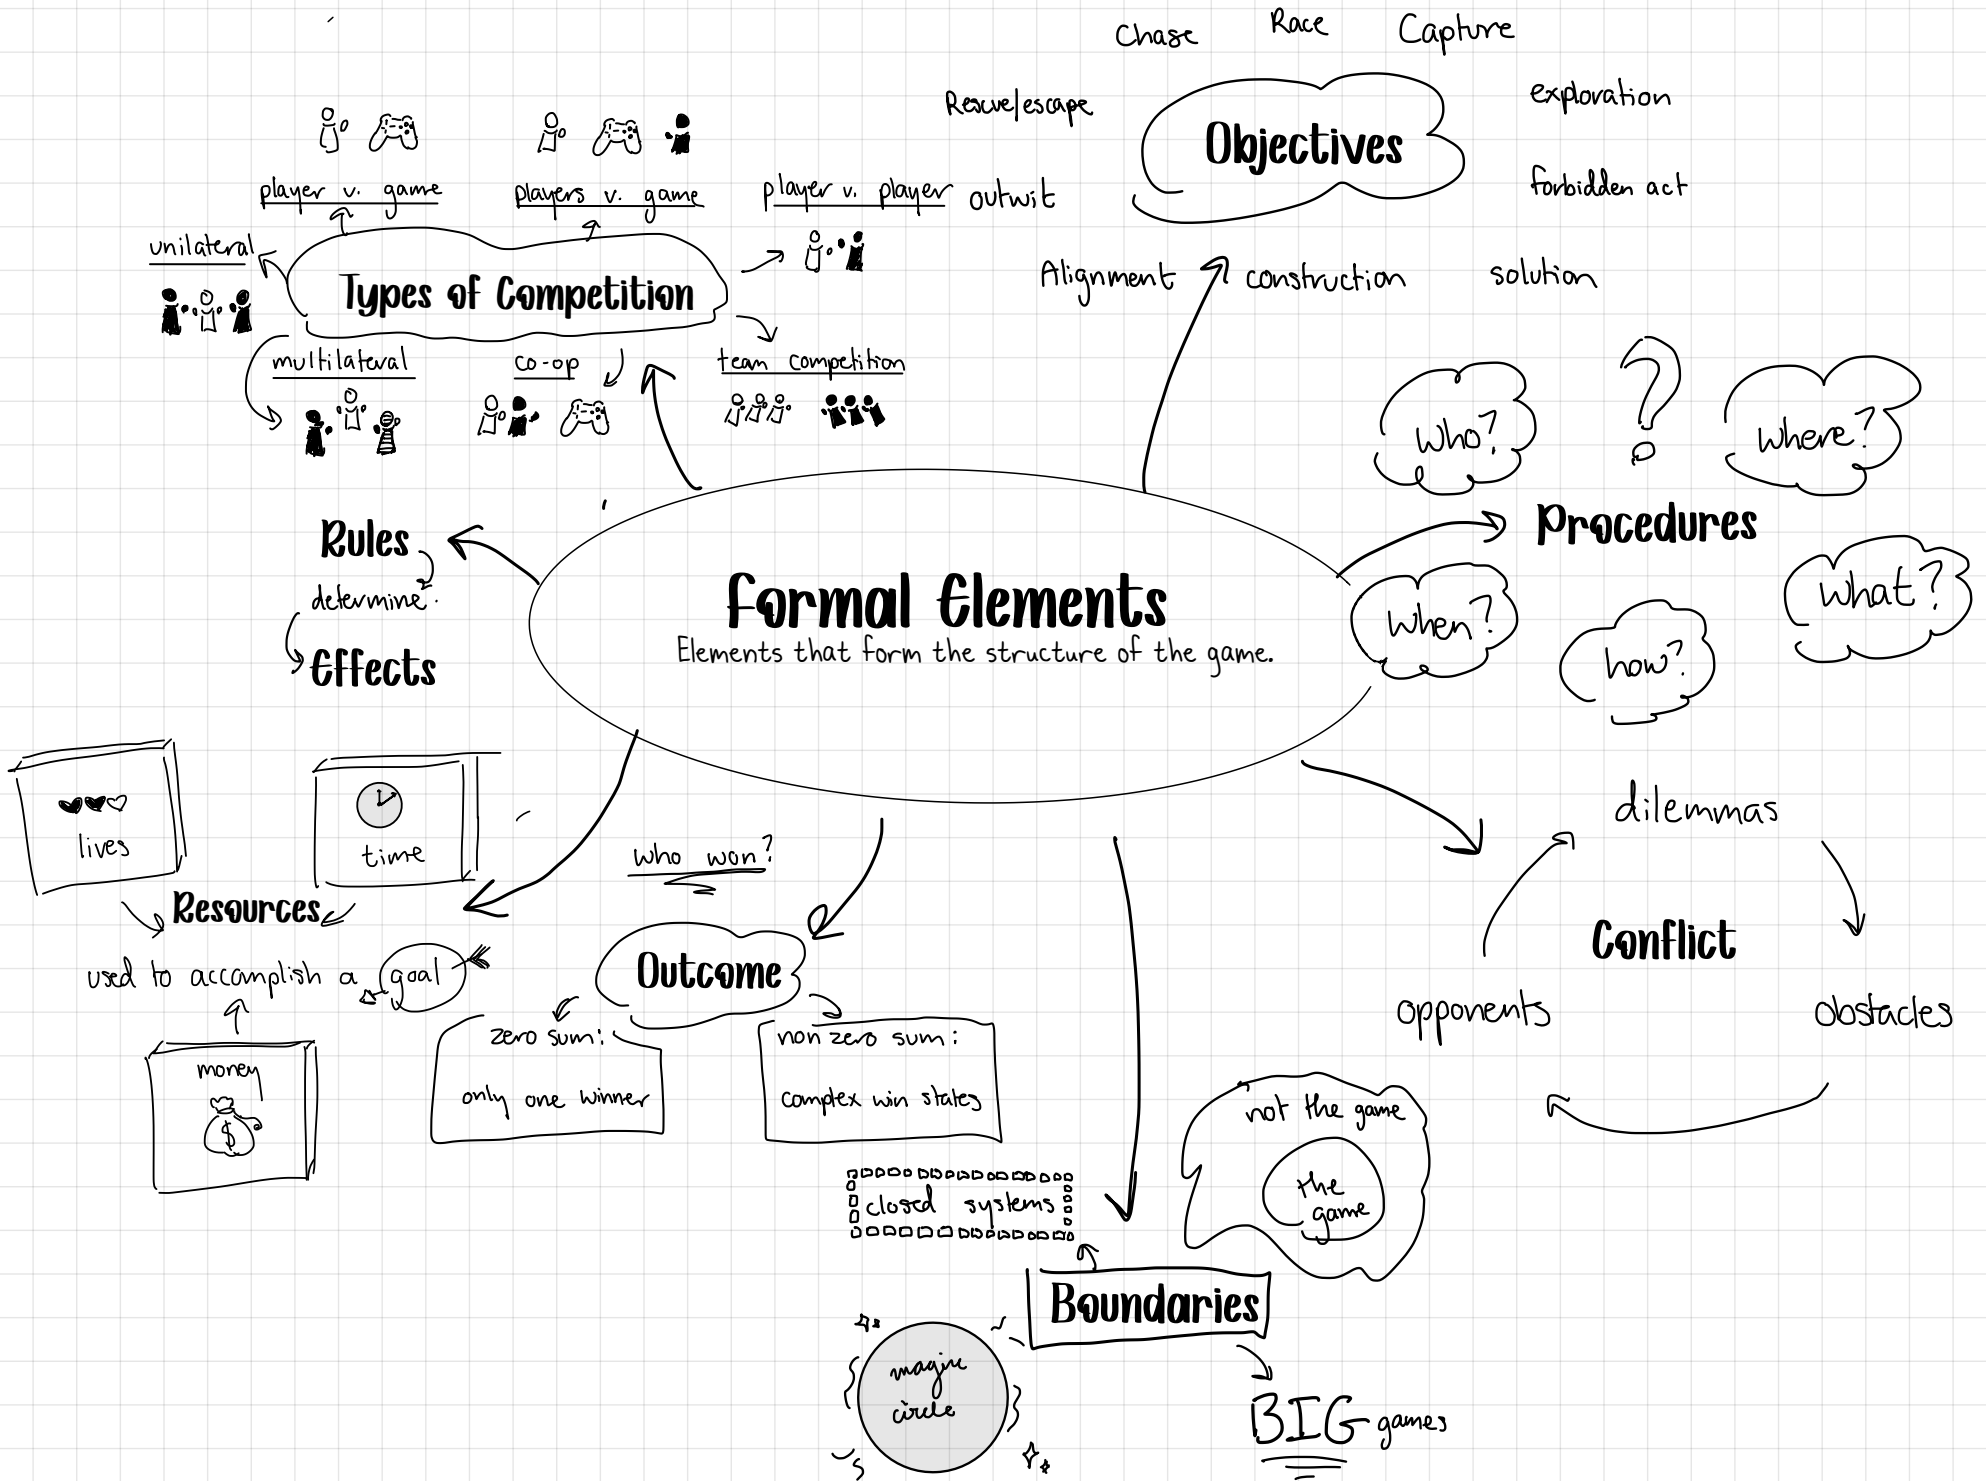 Chase
Race
Capture
Rescue/escape
exploration
Objectives
outwit
forbidden act
Alignment
construction
solution
player v. game
players v. game
player v. player
unilateral
Types of Competition
multilateral
co-op
team competition
Who?
?
where?
Procedures
When?
how?
what?
Rules
determine
Effects
Formal Elements
Elements that form the structure of the game.
lives
time
Resources
used to accomplish a goal
money
$
who won?
Outcome
zero sum:
only one winner
non zero sum:
complex win states
dilemmas
Conflict
opponents
obstacles
not the game
the
game
closed systems
Boundaries
magic
circle
BIG games